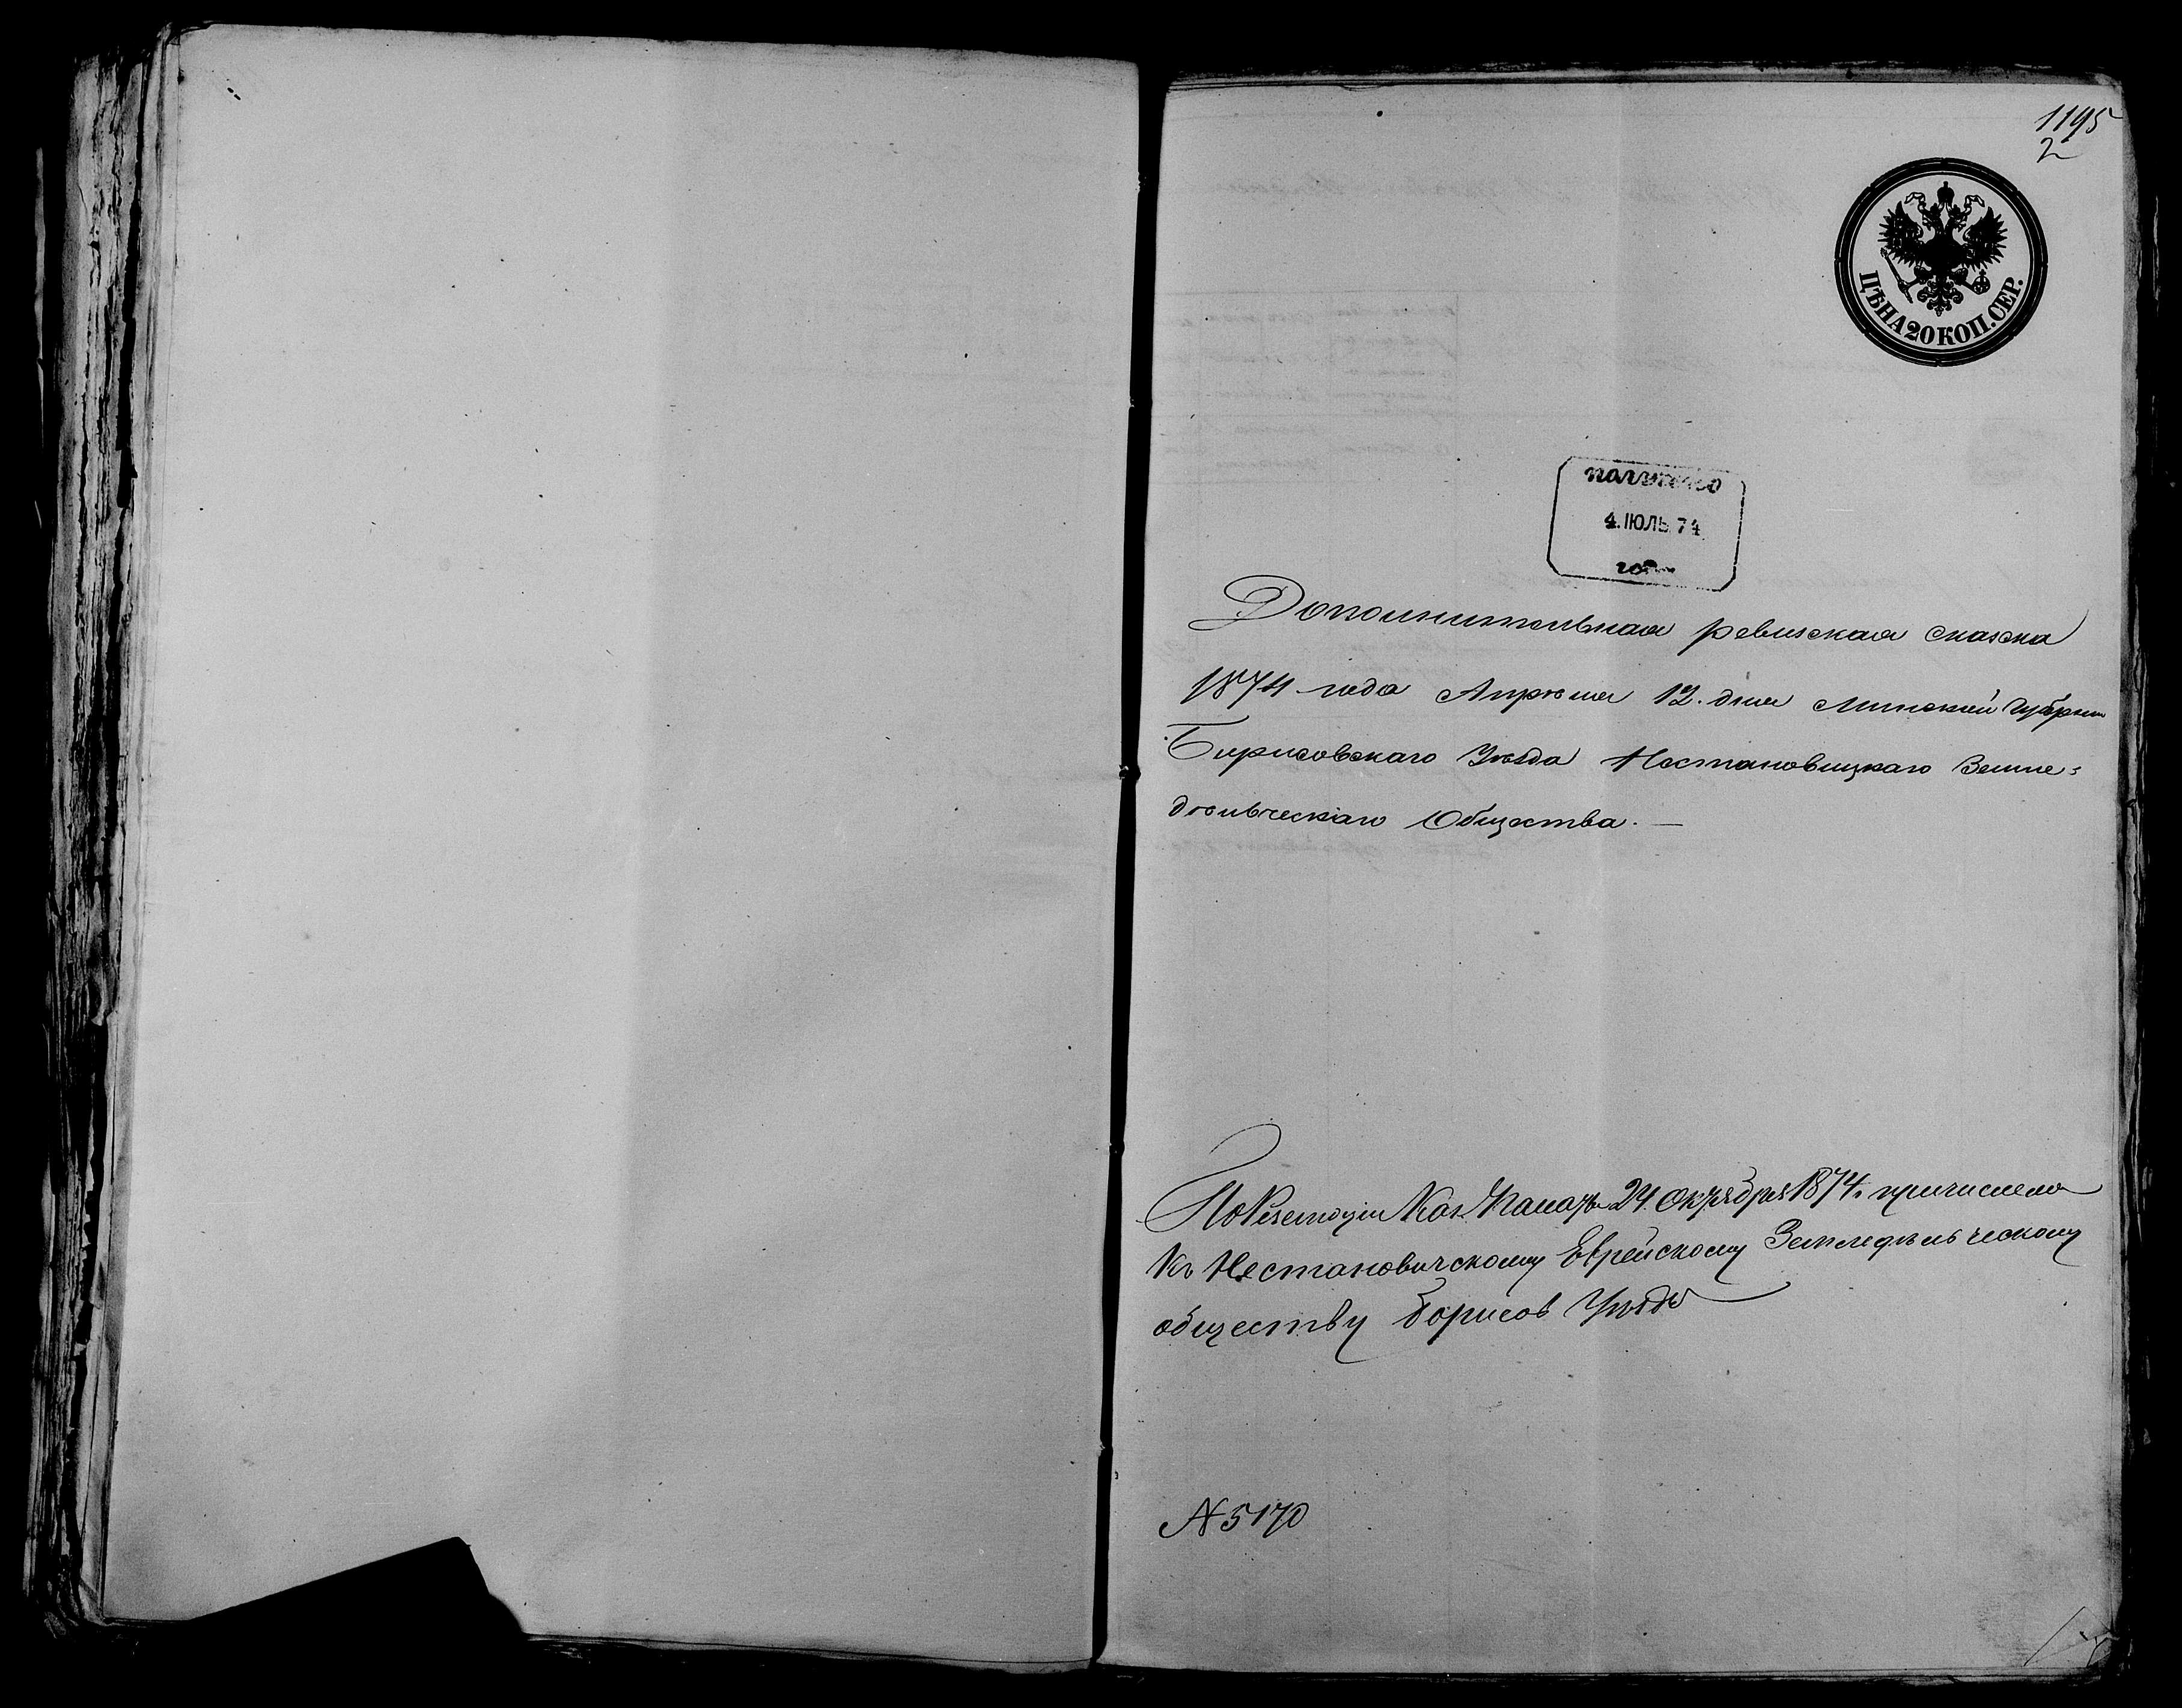 1195
2
ЦѢНА 20 КОП. СЕР.
получено
4. ІЮЛЬ. 74
года
Дополнительная ревизская сказка
1874 года Апрѣля 12. дня Минской Губерніи
Борисовскаго Уѣзда Нестановицкаго Земле-
дѣльческаго Общества. —
По Резолюціи Каз. Палаты 24 Октября 1874 г. причислена
Къ Нестановичскому Еврейскому Земледѣльческому
обществу Борисов Уѣзда
№ 5170